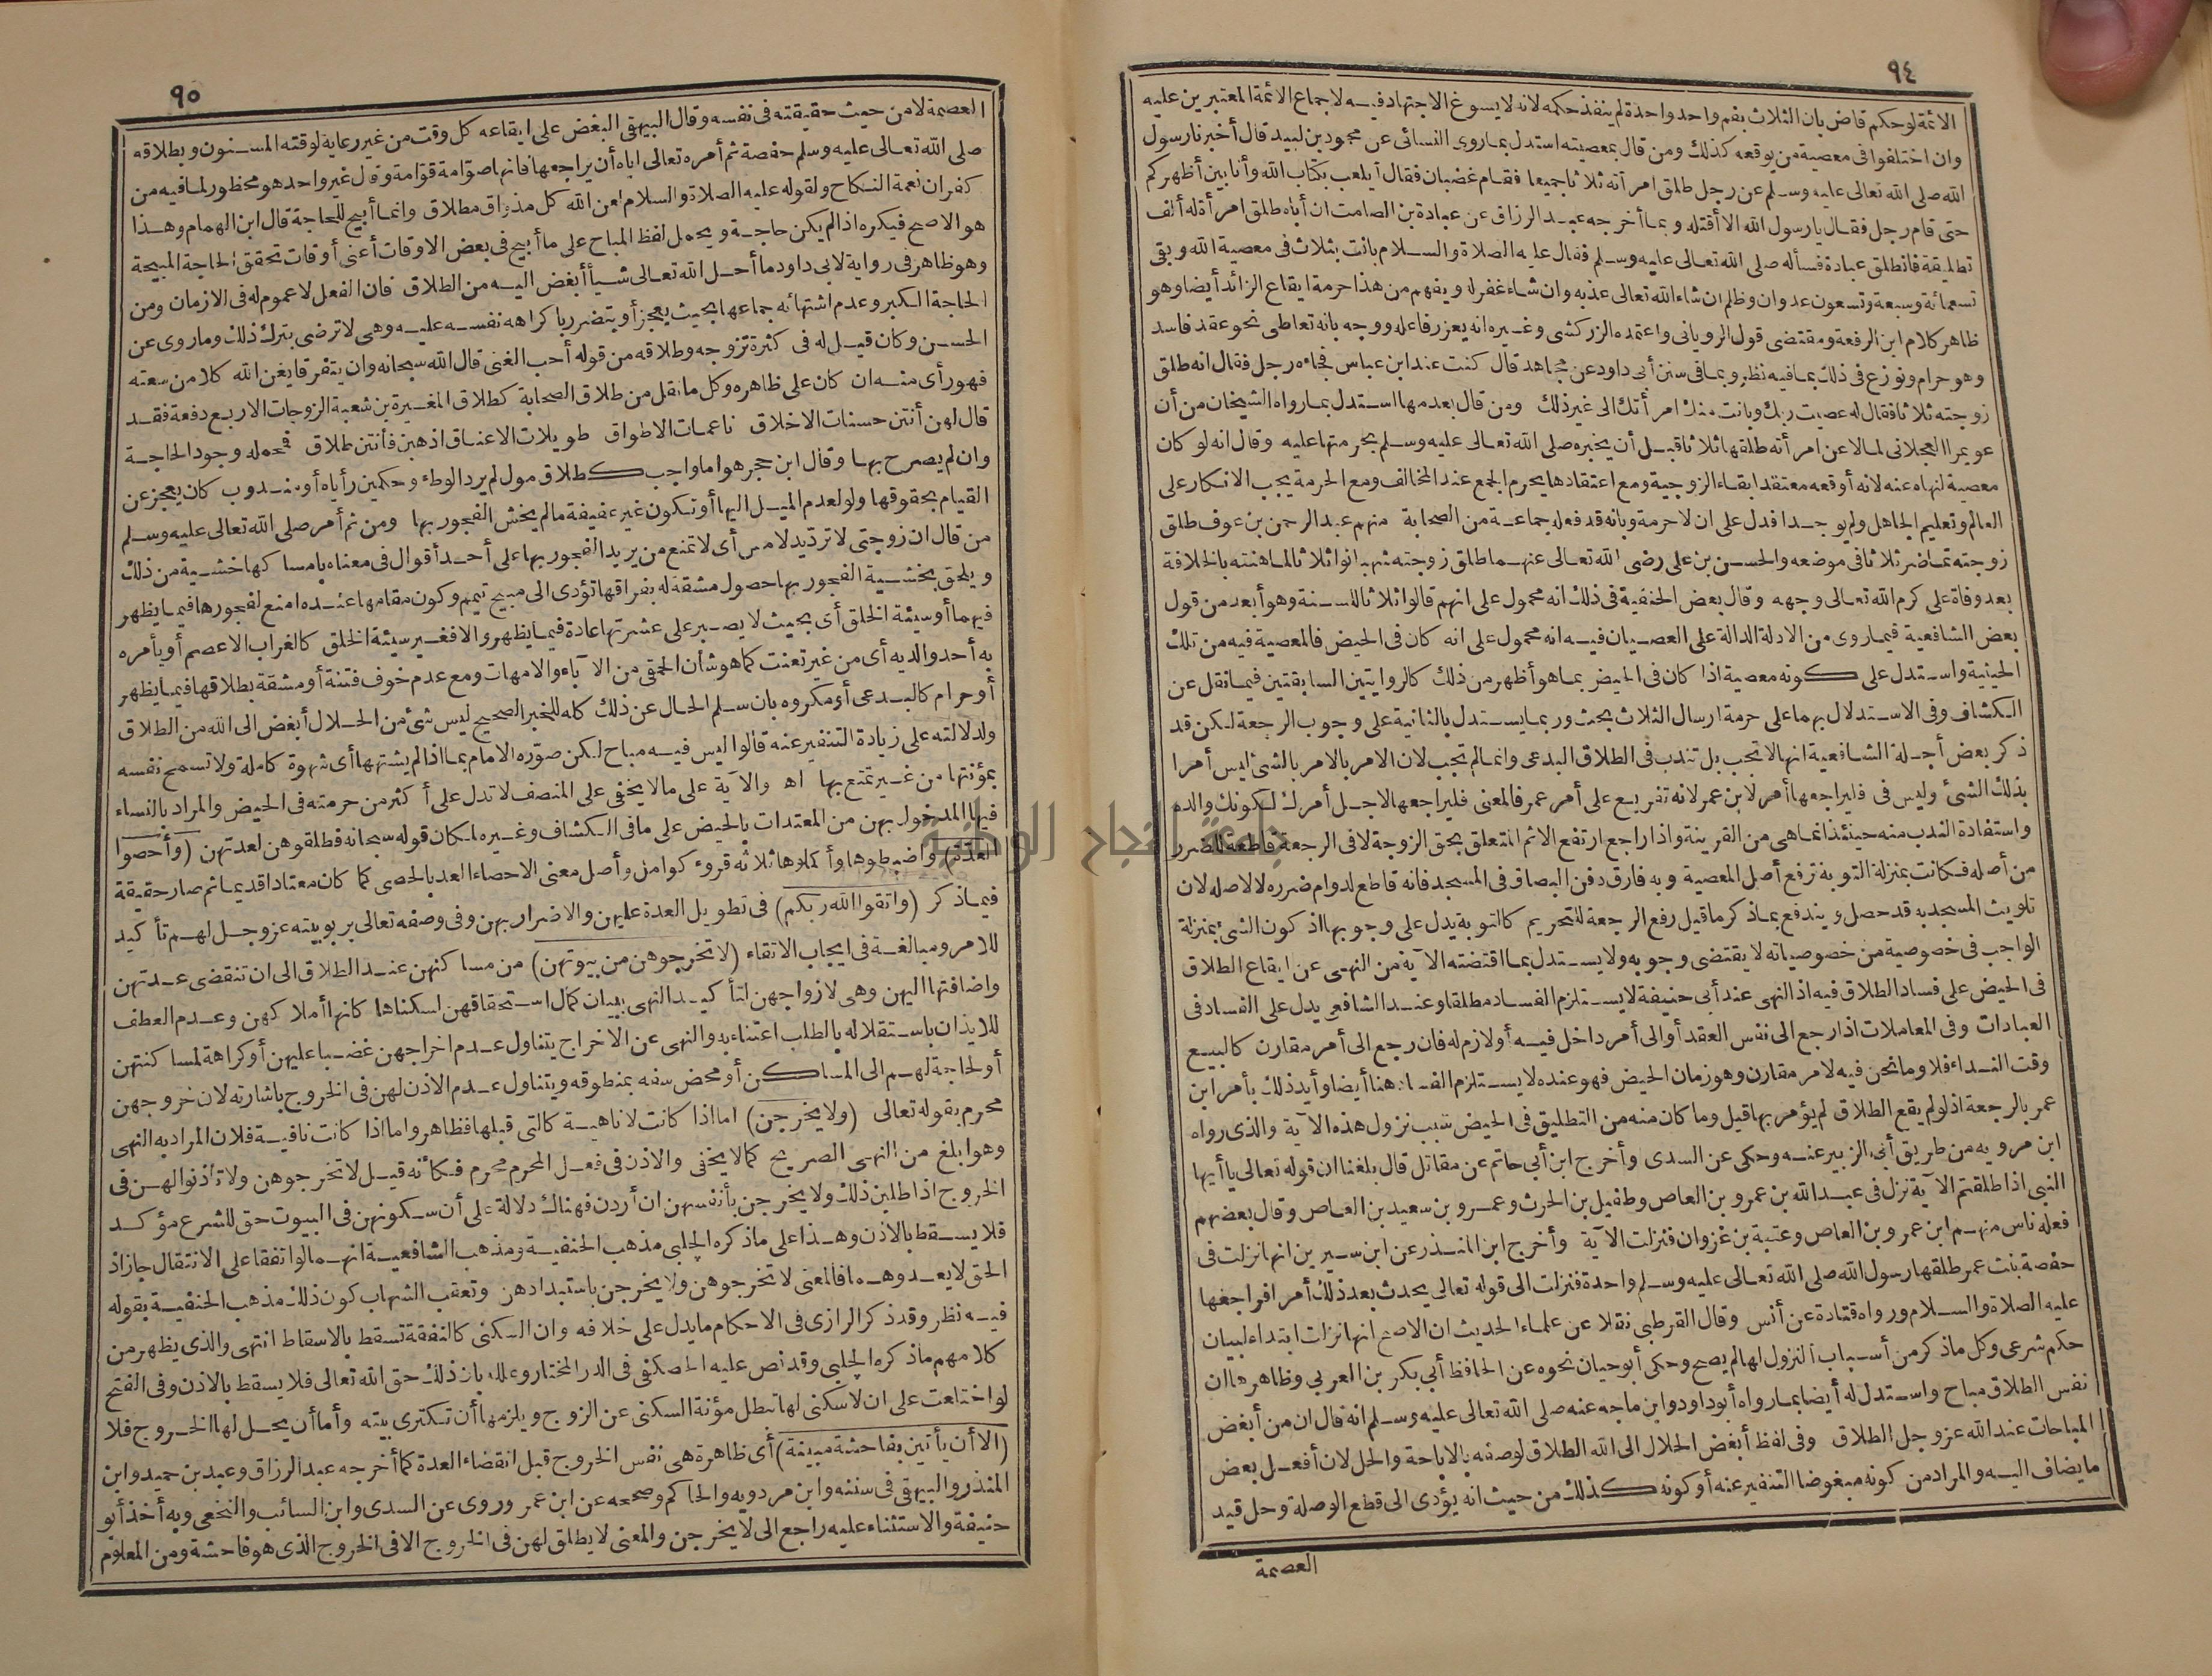 ٩٤
الائمة لو حكم قاض بان الثلاث بفم واحد واحدة لم ينفذ حكمه لانه لا يسوغ الاجتهاد فيه لاجماع الائمة المعتبرين عليه
وان اختلفوا فى معصية من يوقعه كذلك ومن قال بمعصيته استدل بما روى النسائى عن محمود بن لبيد قال أخبرنا رسول
الله صلى الله تعالى عليه وسلم عن رجل طلق امرأته ثلاثا جميعا فقام غضبان فقال أيلعب بكتاب الله وأنا بين أظهركم
حتى قام رجل فقال يا رسول الله الا أقتله وبما أخرجه عبد الرزاق عن عبادة بن الصامت ان أباه طلق امرأة له ألف
تطليقة فانطلق عبادة فسأله صلى الله تعالى عليه وسلم فقال عليه الصلاة والسلام بانت بثلاث فى معصية الله وبقى
تسعمائة وسبعة وتسعون عدوان وظلم ان شاء الله تعالى عذبه وان شاء غفر له ويفهم من هذا حرمة ايقاع الزائد أيضا وهو
ظاهر كلام ابن الرفعة ومقتضى قول الرويانى واعتمده الزركشى وغيره انه يعزر فاعله ووجه بانه تعاطى نحو عقد فاسد
وهو حرام ونوزع فى ذلك بما فيه نظر وبما فى سنن أبى داود عن مجاهد قال كنت عند ابن عباس فجاءه رجل فقال انه طلق
زوجته ثلاثا فقال له عصيت ربك وبانت منك امرأتك الى غير ذلك ومن قال بعدمها استدل بما رواه الشيخان من أن
عويمرا العجلانى لما لاعن امرأته طلقها ثلاثا قبل أن يخبره صلى الله تعالى عليه وسلم بحرمتها عليه وقال انه لو كان
معصية لنهاه عنه لانه أوقعه معتقدا بقاء الزوجية ومع اعتقادها يحرم الجمع عند المخالف ومع الحرمة يجب الانكار على
العالم وتعليم الجاهل ولم يوجدا فدل على ان لا حرمة وبانه قد فعله جماعة من الصحابة منهم عبد الرحمن بن عوف طلق
زوجته تماضر ثلاثا فى موضعه والحسن بن على رضى الله تعالى عنهما طلق زوجته شهبانوا ثلاثا لما هنته بالخلافة
بعد وفاة على كرم الله تعالى وجهه وقال بعض الحنفية فى ذلك انه محمول على انهم قالوا ثلاثا للسنة وهو أبعد من قول
بعض الشافعية فيما روى من الادلة الدالة على العصيان فيه انه محمول على انه كان فى الحيض فالمعصية فيه من تلك
الحيثية واستدل على كونه معصية اذا كان فى الحيض بما هو أظهر من ذلك كالروايتين السابقتين فيما نقل عن
الكشاف وفى الاستدلال بهما على حرمة ارسال الثلاث بحث وربما يستدل بالثانية على وجوب الرجعة لكن قد
ذكر بعض أجلة الشافعية انها لا تجب بل تندب فى الطلاق البدعى وانما لم تجب لان الامر بالامر بالشئ ليس أمرا
بذلك الشئ وليس فى فليراجعها أمر لابن عمر لانه تفريع على أمر عمر فالمعنى فليراجعها لاجل أمرك لكونك والده
واستفادة الندب منه حينئذ انما هى من القرينة واذا راجع ارتفع الاثم المتعلق بحق الزوجة لا فى الرجعة قاطعة للضرر
من أصله فكانت بمنزلة التوبة ترفع أصل المعصية وبه فارق دفن البصاق فى المسجد فانه قاطع لدوام ضرره لا لاصله لان
تلويث المسجد به قد حصل ويندفع بما ذكر ما قيل رفع الرجعة للتحريم كالتوبة يدل على وجوبها اذ كون الشئ بمنزلة
الواجب فى خصوصية من خصوصياته لا يقتضى وجوبه ولا يستدل بما اقتضته الآية من النهى عن ايقاع الطلاق
فى الحيض على فساد الطلاق فيه اذ النهى عند أبى حنيفة لا يستلزم الفساد مطلقا وعند الشافعى يدل على الفساد فى
العبادات وفى المعاملات اذا رجع الى نفس العقد أو الى أمر داخل فيه أو لازم له فان رجع الى أمر مقارن كالبيع
وقت النداء فلا وما نحن فيه لامر مقارن وهو زمان الحيض فهو عنده لا يستلزم الفساد هنا أيضا وأيد ذلك بأمر ابن
عمر بالرجعة اذ لو لم يقع الطلاق لم يؤمر بها قيل وما كان منه من التطليق فى الحيض سبب نزول هذه الآية والذى رواه
ابن مردويه من طريق أبى الزبير عنه وحكى عن السدى وأخرج ابن أبى حاتم عن مقاتل قال بلغنا ان قوله تعالى يا أيها
النبى اذا طلقتم الآية نزل فى عبد الله بن عمرو بن العاص وطفيل بن الحرث وعمرو بن سعيد بن العاص وقال بعضهم
فعله ناس منهم ابن عمرو بن العاص وعتبة بن غزوان فنزلت الآية وأخرج ابن المنذر عن ابن سيرين انها نزلت فى
حفصة بنت عمر طلقها رسول الله صلى الله تعالى عليه وسلم واحدة فنزلت الى قوله تعالى يحدث بعد ذلك أمرا فراجعها
عليه الصلاة والسلام ورواه قتادة عن أنس وقال القرطبى نقلا عن علماء الحديث ان الاصح انها نزلت ابتداء لبيان
حكم شرعى وكل ما ذكر من أسباب النزول لها لم يصح وحكى أبو حيان نحوه عن الحافظ أبى بكر بن العربى وظاهرها ان
نفس الطلاق مباح واستدل له أيضا بما رواه أبو داود وابن ماجه عنه صلى الله تعالى عليه وسلم انه قال ان من أبغض
المباحات عند الله عز وجل الطلاق وفى لفظ أبغض الحلال الى الله الطلاق لوصفه بالاباحة والحل لان أفعل بعض
ما يضاف اليه والمراد من كونه مبغوضا التنفير عنه أو كونه كذلك من حيث انه يؤدى الى قطع الوصلة وحل قيد
العصمة
٩٥
العصمة لا من حيث حقيقته فى نفسه وقال البيهقى البغض على ايقاعه كل وقت من غير رعاية لوقته المسنون وبطلاقه
صلى الله تعالى عليه وسلم حفصة ثم أمره تعالى اياه أن يراجعها فانها صوّامة قوّامة وقال غير واحد هو محظور لما فيه من
كفران نعمة النكاح ولقوله عليه الصلاة والسلام لعن الله كل مذواق مطلاق وانما أبيح للحاجة قال ابن الهمام وهذا
هو الاصح فيكره اذا لم يكن حاجة ويحمل لفظ المباح على ما أبيح فى بعض الاوقات أعنى أوقات تحقق الحاجة المبيحة
وهو ظاهر فى رواية لابى داود ما أحل الله تعالى شيأ أبغض اليه من الطلاق فان الفعل لا عموم له فى الازمان ومن
الحاجة الكبر وعدم اشتهائه جماعها بحيث يعجز أو يتضرر باكراهه نفسه عليه وهى لا ترضى بترك ذلك وما روى عن
الحسن وكان قيل له فى كثرة تزوجه وطلاقه من قوله أحب الغنى قال الله سبحانه وان يتفرقا يغن الله كلا من سعته
فهو رأى منه ان كان على ظاهره وكل ما نقل من طلاق الصحابة كطلاق المغيرة بن شعبة الزوجات الاربع دفعة فقد
قال لهن أنتن حسنات الاخلاق ناعمات الاطواق طويلات الاعناق اذهبن فأنتن طلاق فمحمله وجود الحاجة
وان لم يصرح بها وقال ابن حجر هو اما واجب كطلاق مول لم يرد الوطء وحكمين رأياه أو مندوب كان يعجز عن
القيام بحقوقها ولو لعدم الميل اليها أو تكون غير عفيفة ما لم يخش الفجور بها ومن ثم أمر صلى الله تعالى عليه وسلم
من قال ان زوجتى لا تردّ يد لامس أى لا تمنع من يريد الفجور بها على أحد أقوال فى معناه بامساكها خشية من ذلك
ويلحق بخشية الفجور بها حصول مشقة له بفراقها تؤدى الى مبيح تيمم وكون مقامها عنده امنع لفجورها فيما يظهر
فيهما أو سيئة الخلق أى بحيث لا يصبر على عشرتها عادة فيما يظهر والا فغير سيئة الخلق كالغراب الاعصم أو يأمره
به أحد والديه أى من غير تعنت كما هو شأن الحمقى من الآباء والامهات ومع عدم خوف فتنة أو مشقة بطلاقها فيما يظهر
أو حرام كالبدعى أو مكروه بان سلم الحال عن ذلك كله للخبر الصحيح ليس شئ من الحلال أبغض الى الله من الطلاق
ولدلالته على زيادة التنفير عنه قالوا ليس فيه مباح لكن صوّره الامام بما اذا لم يشتهها أى شهوة كاملة ولا تسمح نفسه
بمؤنتها من غير تمتع بها اه والآية على ما لا يخفى على المنصف لا تدل على أكثر من حرمته فى الحيض والمراد بالنساء
فيها المدخول بهن من المعتدات بالحيض على ما فى الكشاف وغيره لمكان قوله سبحانه فطلقوهن لعدتهن (وأحصوا
العدّة) واضبطوها وأكملوها ثلاثة قروء كوامل وأصل معنى الاحصاء العد بالحصى كما كان معتادا قديما ثم صار حقيقة
فيما ذكر (واتقوا الله ربكم) فى تطويل العدة عليهن والاضرار بهن وفى وصفه تعالى بربوبيته عز وجل لهم تأكيد
للامر ومبالغة فى ايجاب الاتقاء (لا تخرجوهن من بيوتهن) من مساكنهن عند الطلاق الى ان تنقضى عدتهن
واضافتها اليهن وهى لازواجهن لتأكيد النهى ببيان كمال استحقاقهن لسكناها كانها أملاكهن وعدم العطف
للايذان باستقلاله بالطلب اعتناء به والنهى عن الاخراج يتناول عدم اخراجهن غضبا عليهن أو كراهة لمساكنتهن
أو لحاجة لهم الى المساكن أو محض سفه بمنطوقه ويتناول عدم الاذن لهن فى الخروج باشارته لان خروجهن
محرم بقوله تعالى (ولا يخرجن) اما اذا كانت لا ناهية كالتى قبلها فظاهر واما اذا كانت نافية فلان المراد به النهى
وهو ابلغ من النهى الصريح كما لا يخفى والاذن فى فعل المحرم محرم فكأنه قيل لا تخرجوهن ولا تأذنوا لهن فى
الخروج اذا طلبن ذلك ولا يخرجن بأنفسهن ان أردن فهناك دلالة على أن سكونهن فى البيوت حق للشرع مؤكد
فلا يسقط بالاذن وهذا على ما ذكره الجلبى مذهب الحنفية ومذهب الشافعية انهما لو اتفقا على الانتقال جاز اذ
الحق لا يعدوهما فالمعنى لا تخرجوهن ولا يخرجن باستبدادهن وتعقب الشهاب كون ذلك مذهب الحنفية بقوله
فيه نظر وقد ذكر الرازى فى الاحكام ما يدل على خلافه وان السكنى كالنفقة تسقط بالاسقاط انتهى والذى يظهر من
كلامهم ما ذكره الجلبى وقد نص عليه الحصكفى فى الدر المختار وعلله بان ذلك حق الله تعالى فلا يسقط بالاذن وفى الفتح
لو اختلعت على ان لا سكنى لها تبطل مؤنة السكنى عن الزوج ويلزمها أن تكترى بيته وأما أن يحل لها الخروج فلا
(الا أن يأتين بفاحشة مبينة) أى ظاهرة هى نفس الخروج قبل انقضاء العدة كما أخرجه عبد الرزاق وعبد بن حميد وابن
المنذر والبيهقى فى سننه وابن مردويه والحاكم وصححه عن ابن عمر وروى عن السدى وابن السائب والنخعى وبه أخذ أبو
حنيفة والاستثناء عليه راجع الى لا يخرجن والمعنى لا يطلق لهن فى الخروج الا فى الخروج الذى هو فاحشة ومن المعلوم
جامعة النجاح الوطنية